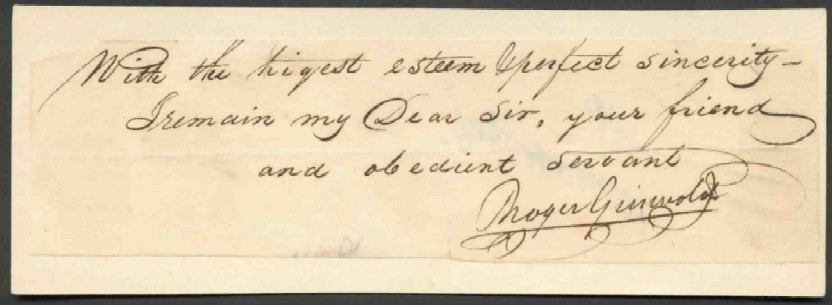 With the higest esteem & perfect sincerity–
I remain my Dear Sir, your friend
and obedient servant
Roger Griswold